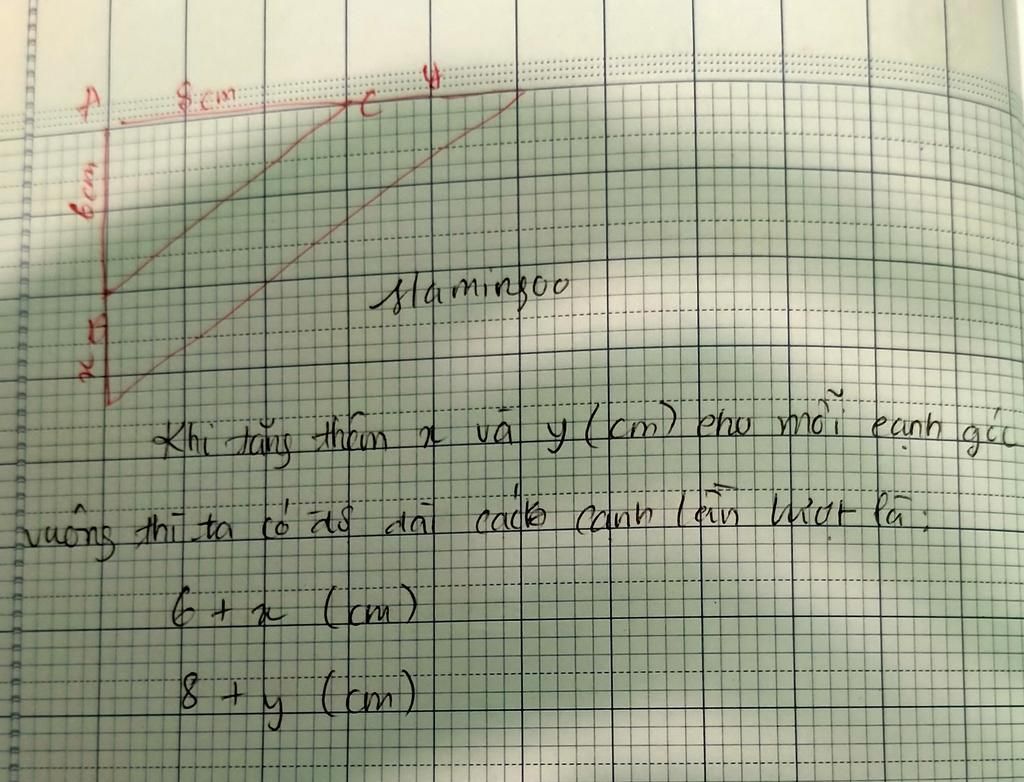 A 8 cm C y
6cm
B
x
flamingoo
Khi tăng thêm x và y (cm) cho mỗi cạnh góc
vuông thì ta có độ dài các cạnh lần lượt là:
6 + x (cm)
8 + y (cm)